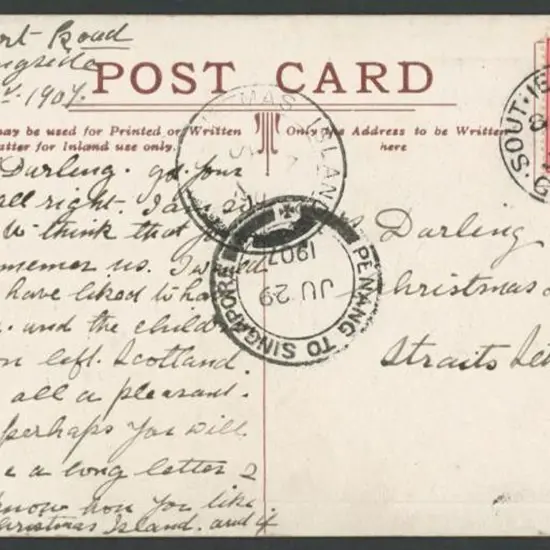 ort Road
ngside
1907.
POST CARD
may be used for Printed or Written
atter for Inland use only.
Only the Address to be Written
here
Darling. got your
all right. I am
We think that
remember us. I would
have liked to ha
. and the child
n left. Scotland.
all a pleasant.
perhaps You will
e a long letter &
know how You like
Christmas Island. and if
Darling
Christmas
Straits Set
CHRISTMAS ISLAND
PENANG TO SINGAPOR
JU 29
1907
SOUT